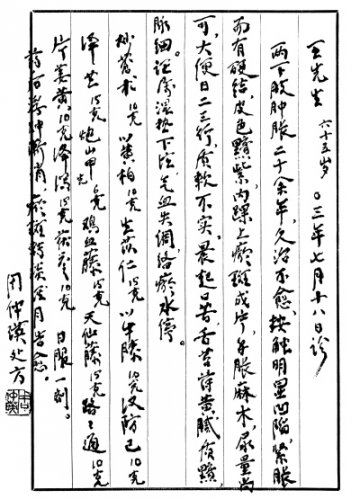 王先生 六十五岁 〇三年七月十八日诊
两下肢肿胀二十余年，久治不愈，按触明显凹陷，紧胀
而有硬结，皮色黯紫，内踝上瘀斑成片，手胀麻木，尿量尚
可，大便日二三行，质软不实。晨起口苦，舌苔黄腻质黯，
脉细。证属湿热下注，气血失调，络瘀水停。
炒苍术10克 川黄柏10克 生苡仁15克 川牛膝10克 汉防己10克
泽兰15克 炮山甲6克 鸡血藤15克 天仙藤15克 路路通10克
片姜黄10克 泽泻15克 莪术10克 日服一剂。
药后浮肿渐消，瘀斑转淡，月告愈。
周仲瑛处方